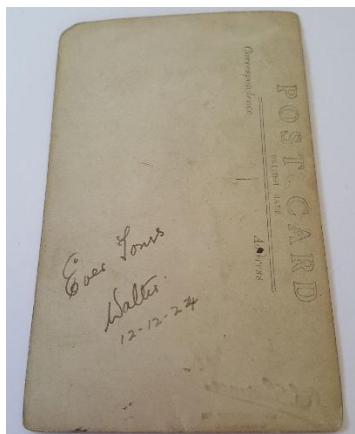 POST CARD
Correspondence
Address
Ever Yours
Walter.
12-12-24